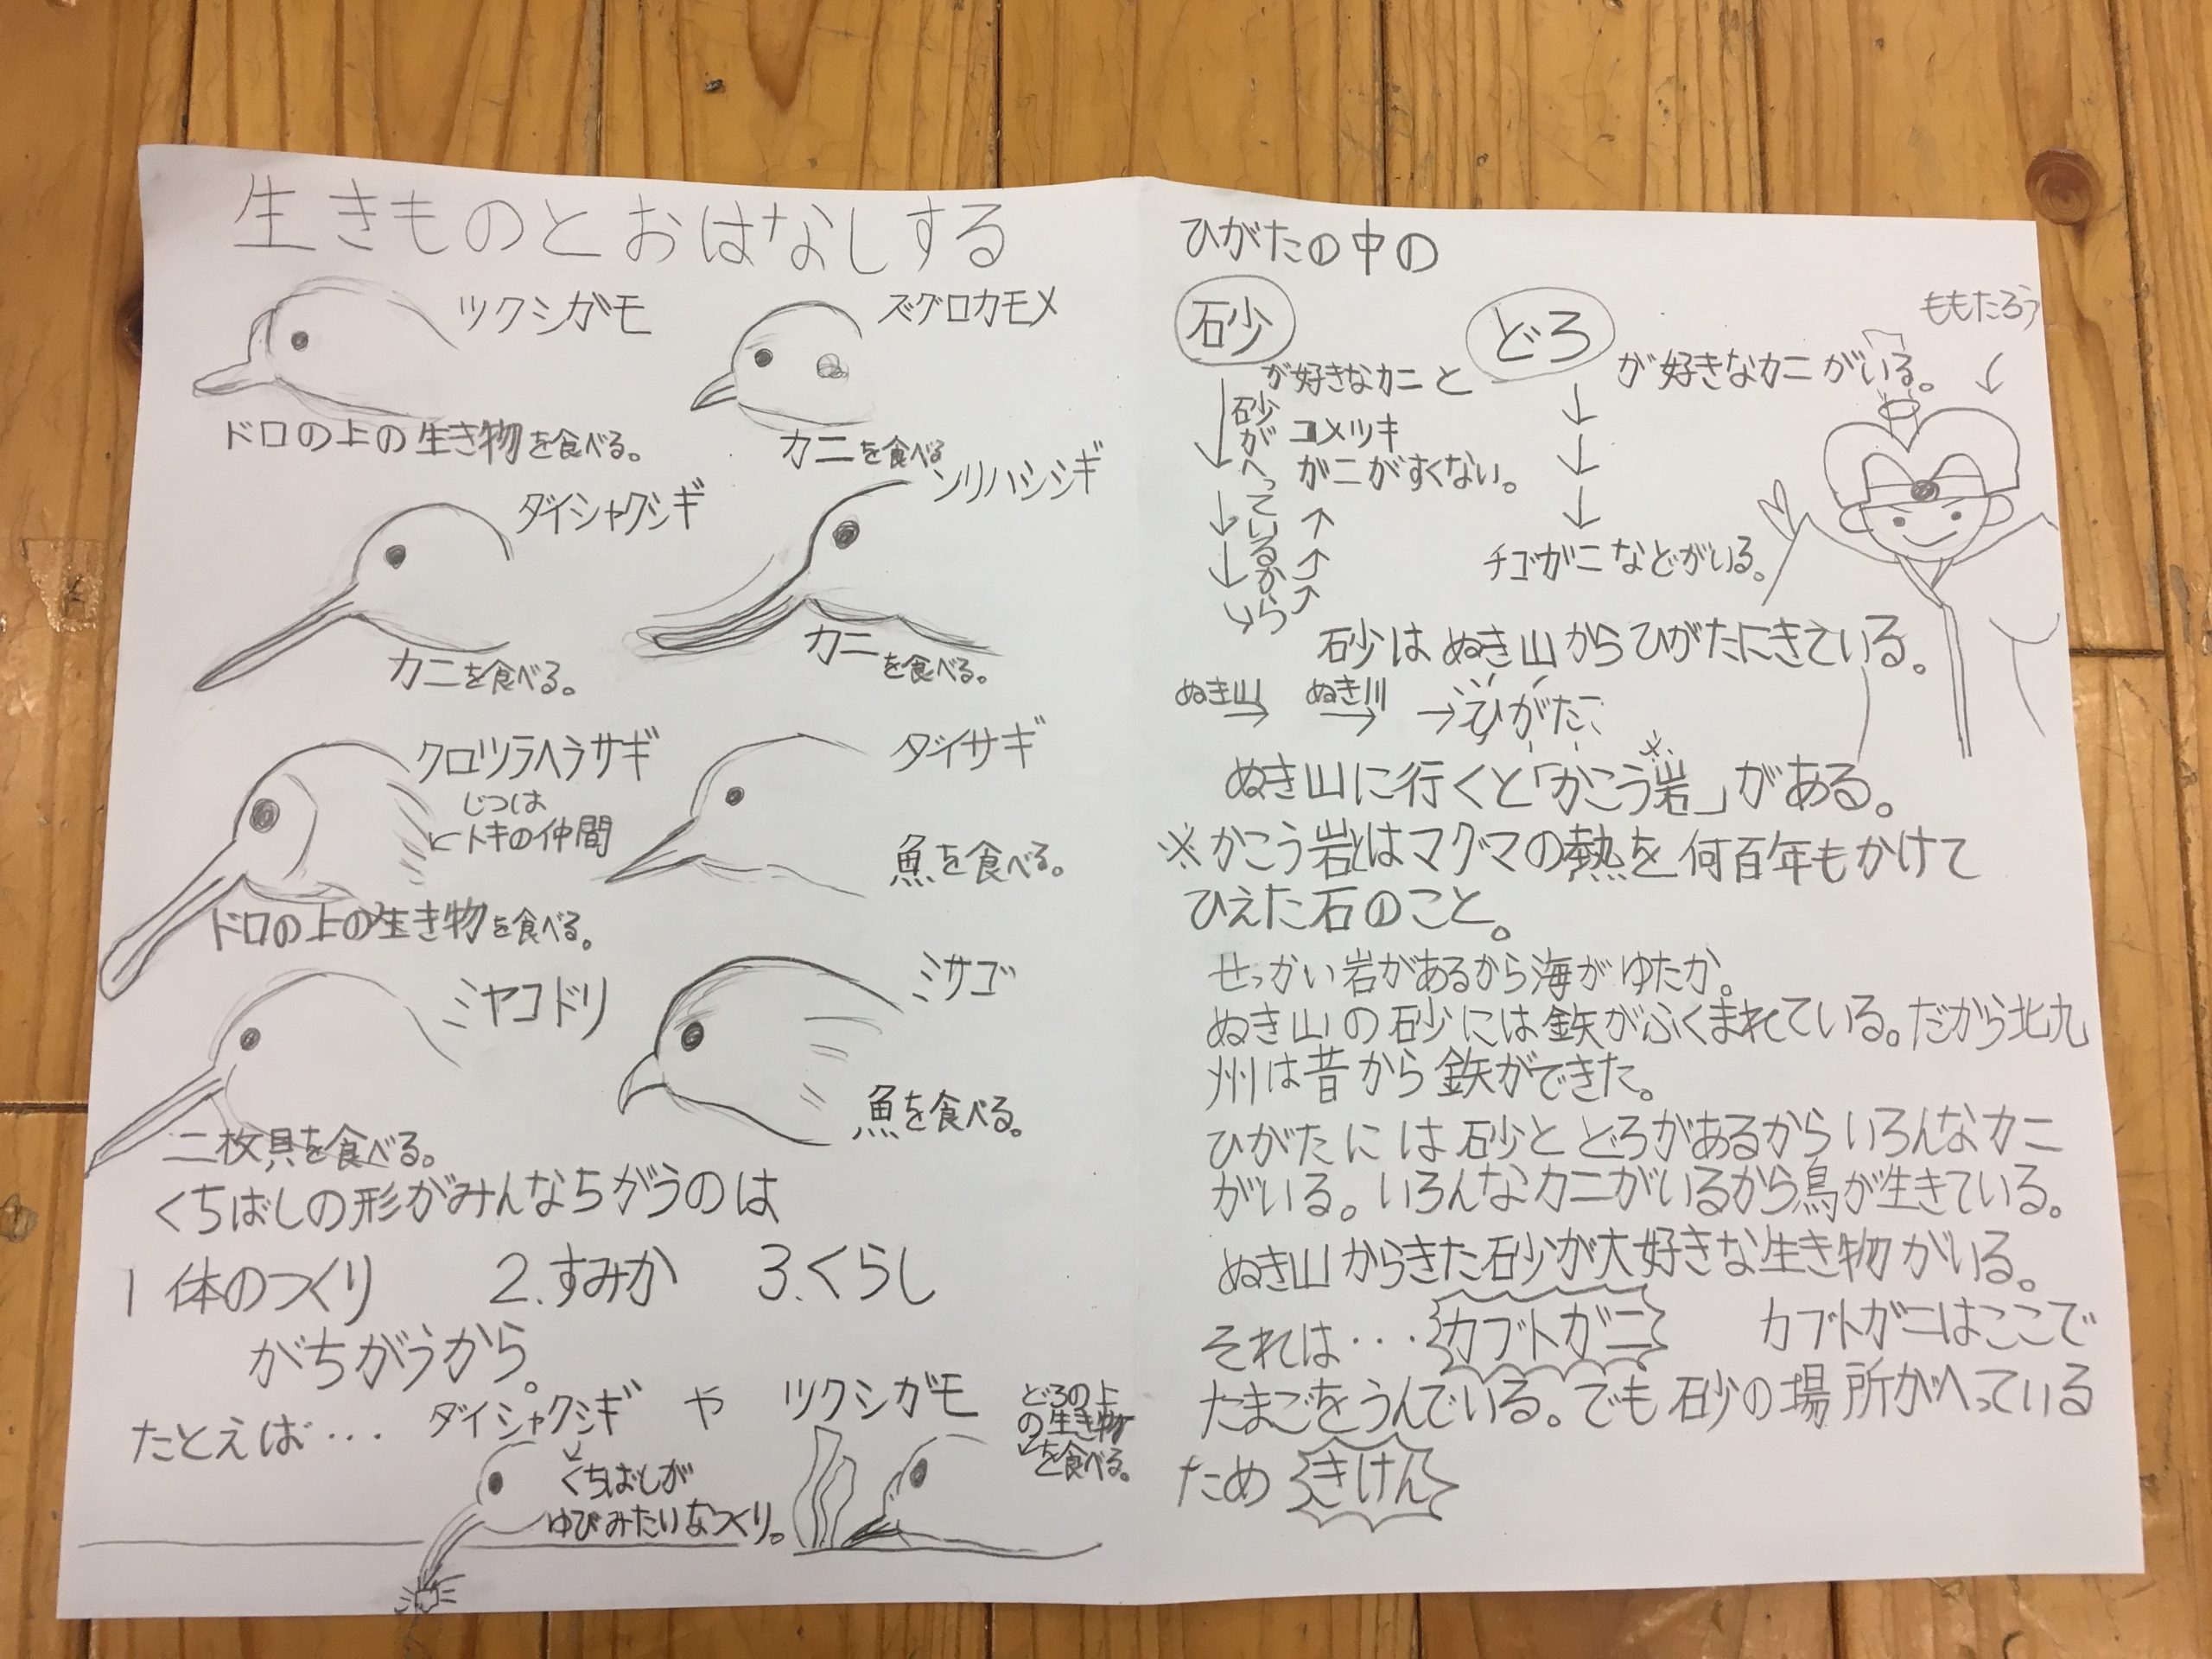 生きものとおはなしする
ツクシガモ
ドロの上の生き物を食べる。
ズグロカモメ
カニを食べる
ダイシャクシギ
カニを食べる。
ソリハシシギ
カニを食べる。
クロツラヘラサギ
じつは
トキの仲間
ドロの上の生き物を食べる。
ダイサギ
魚を食べる。
ミヤコドリ
二枚貝を食べる。
ミサゴ
魚を食べる。
くちばしの形がみんなちがうのは
1 体のつくり 2.すみか 3.くらし
がちがうから。
たとえば… ダイシャクシギ や ツクシガモ
くちばしが
ゆびみたいなつくり。
どろの上
の生き物
を食べる。
ひがたの中の
砂が好きなカニとどろが好きなカニがいる。
砂がへっているから
コメツキ
がニがすくない。
チゴガニなどがいる。
ももたろう
砂はぬき山からひがたにきている。
ぬき山→ ぬき川→ →ひがた
ぬき山に行くと「かこう岩」がある。
※かこう岩とはマグマの熱を何百年もかけて
ひえた石のこと。
せっかい岩があるから海がゆたか。
ぬき山の砂には鉄がふくまれている。だから北九
州は昔から鉄ができた。
ひがたには砂とどろがあるからいろんなカニ
がいる。いろんなカニがいるから鳥が生きている。
ぬき山からきた砂が大好きな生き物がいる。
それは… カブトガニ カブトガニはここで
たまごをうんでいる。でも砂の場所がへっている
ため きけん